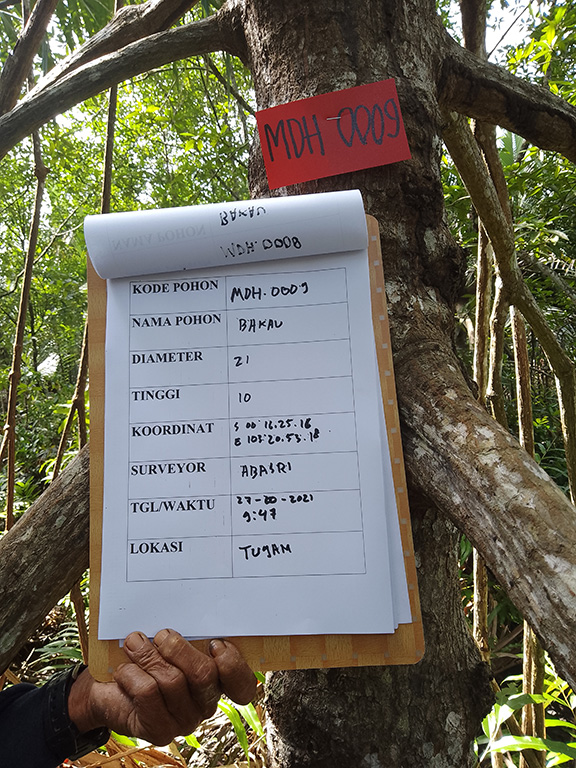 MDH 0009
BAKAU
NAMA POHON
MDH.0008
KODE POHON MDH.0009
NAMA POHON BAKAU
DIAMETER 21
TINGGI 10
KOORDINAT S 00°
E 103°20.53.18
SURVEYOR ABASRI
TGL/WAKTU 2021
9:47
LOKASI TUGAM